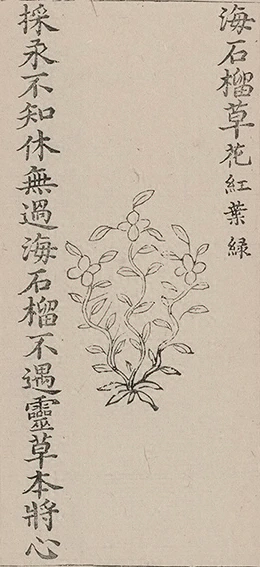 海石榴草花紅葉緑
採永不知休無過海石榴不遇靈草本將心